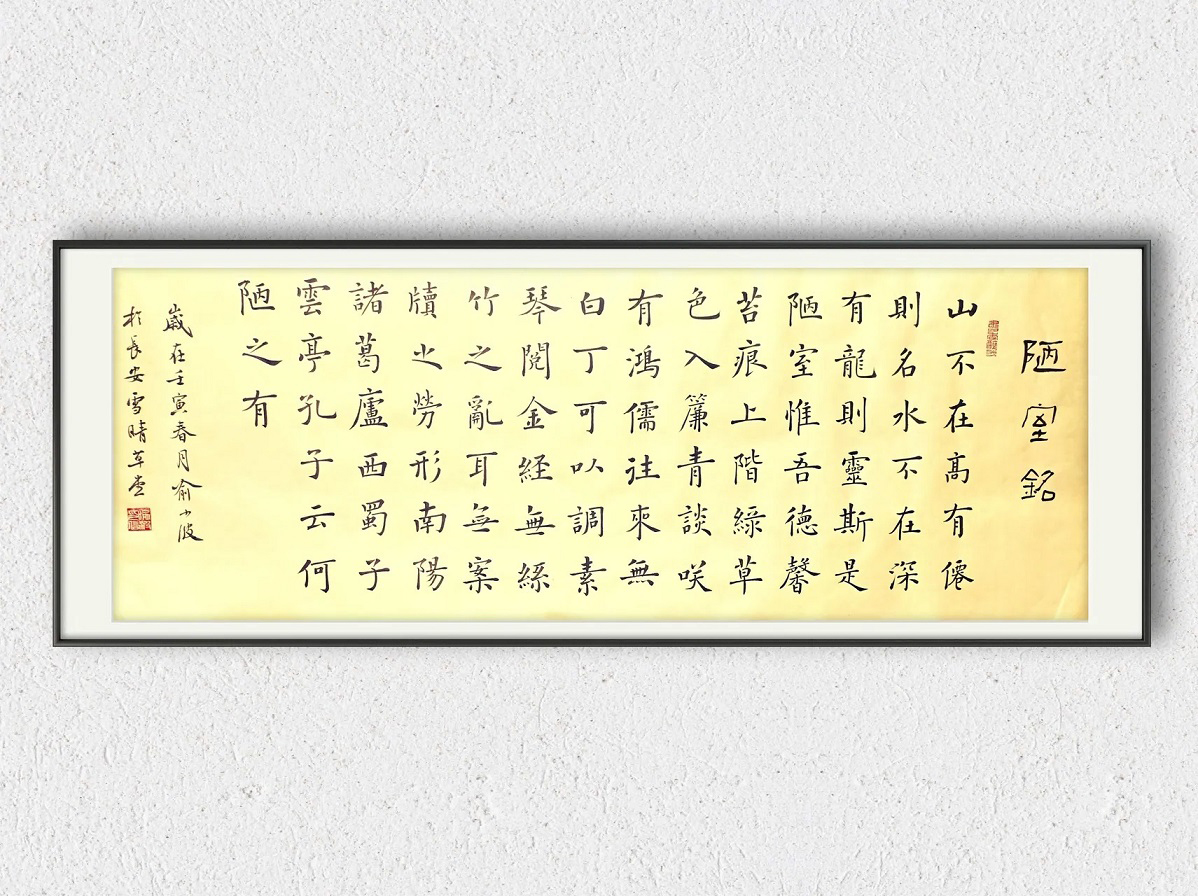 陋室銘
山不在高有僊
則名水不在深
有龍則靈斯是
陋室惟吾德馨
苔痕上階綠草
色入簾青談咲
有鴻儒往來無
白丁可以調素
琴閱金経無絲
竹之亂耳無案
牘之勞形南陽
諸葛廬西蜀子
雲亭孔子云何
陋之有
歲在壬寅春月俞小波
於長安雪晴草堂